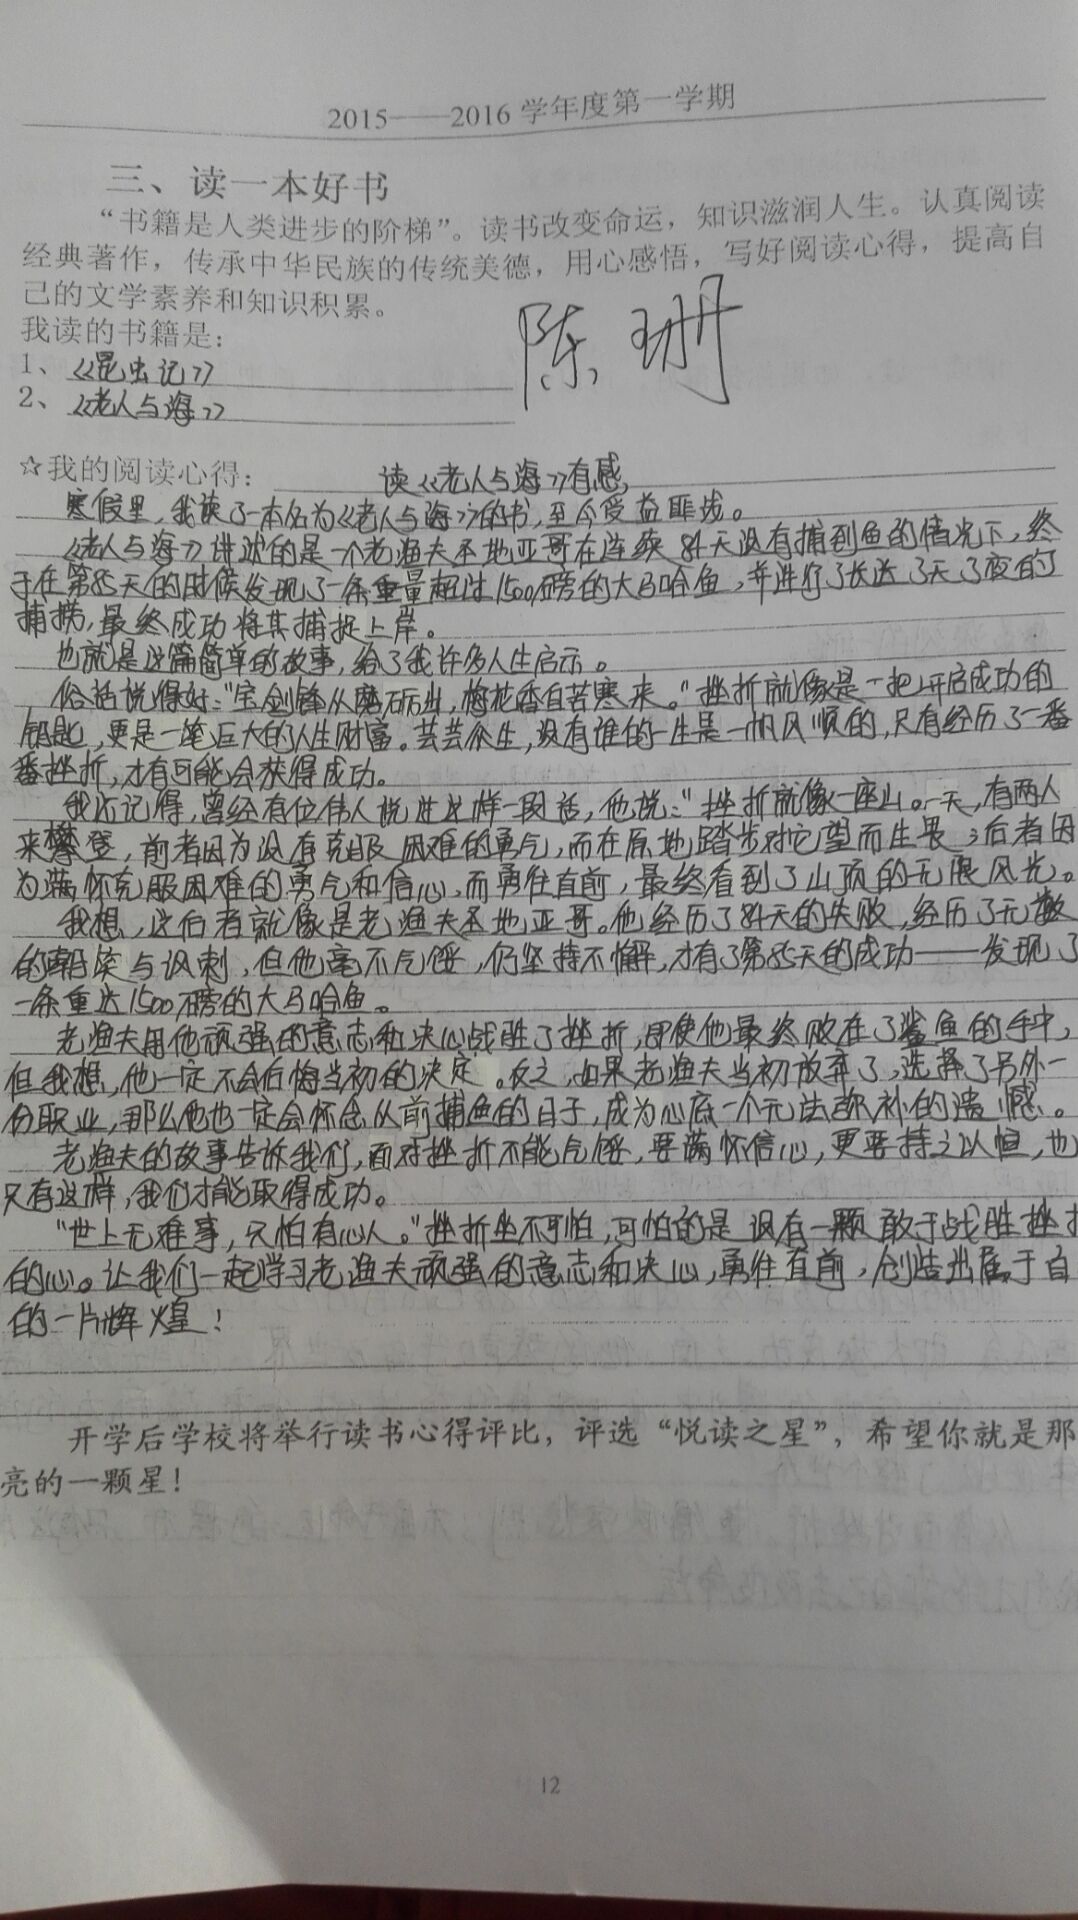 2015——2016 学年度第一学期
三、读一本好书
“书籍是人类进步的阶梯”。读书改变命运，知识滋润人生。认真阅读
经典著作，传承中华民族的传统美德，用心感悟，写好阅读心得，提高自
己的文学素养和知识积累。
我读的书籍是：
陈珊
1、《昆虫记》
2、《老人与海》
☆我的阅读心得： 读《老人与海》有感
寒假里，我读了一本名为《老人与海》的书，至今受益匪浅。
《老人与海》讲述的是一个老渔夫圣地亚哥在连续84天没有捕到鱼的情况下，终
于在第85天的时候发现了一条重量超过1500磅的大马哈鱼，并进行了长达3天3夜的
捕捞，最终成功将其捕捉上岸。
也就是这篇简单的故事，给了我许多人生启示。
俗话说得好：“宝剑锋从磨砺出，梅花香自苦寒来。”挫折就像是一把开启成功的
钥匙，更是一笔巨大的人生财富。芸芸众生，没有谁的一生是一帆风顺的，只有经历了一番
番挫折，才有可能会获得成功。
我还记得，曾经有位伟人说过这样一段话，他说：“挫折就像一座山。一天，有两人
来攀登，前者因为没有克服困难的勇气，而在原地踏步对它望而生畏；后者因
为满怀克服困难的勇气和信心，而勇往直前，最终看到了山顶的无限风光。
我想，这后者就像是老渔夫圣地亚哥。他经历了84天的失败，经历了无数
的嘲笑与讽刺，但他毫不气馁，仍坚持不懈，才有了第85天的成功——发现了
一条重达1500磅的大马哈鱼。
老渔夫用他顽强的意志和决心战胜了挫折，即使他最终败在了鲨鱼的手中，
但我想，他一定不会后悔当初的决定。反之，如果老渔夫当初放弃了，选择了另外一
份职业，那么他也一定会怀念从前捕鱼的日子，成为心底一个无法弥补的遗憾。
老渔夫的故事告诉我们，面对挫折不能气馁，要满怀信心，更要持之以恒，也
只有这样，我们才能取得成功。
“世上无难事，只怕有心人。”挫折并不可怕，可怕的是没有一颗敢于战胜挫
的心。让我们一起学习老渔夫顽强的意志和决心，勇往直前，创造出属于自
的一片辉煌！
开学后学校将举行读书心得评比，评选“悦读之星”，希望你就是那
亮的一颗星！
12